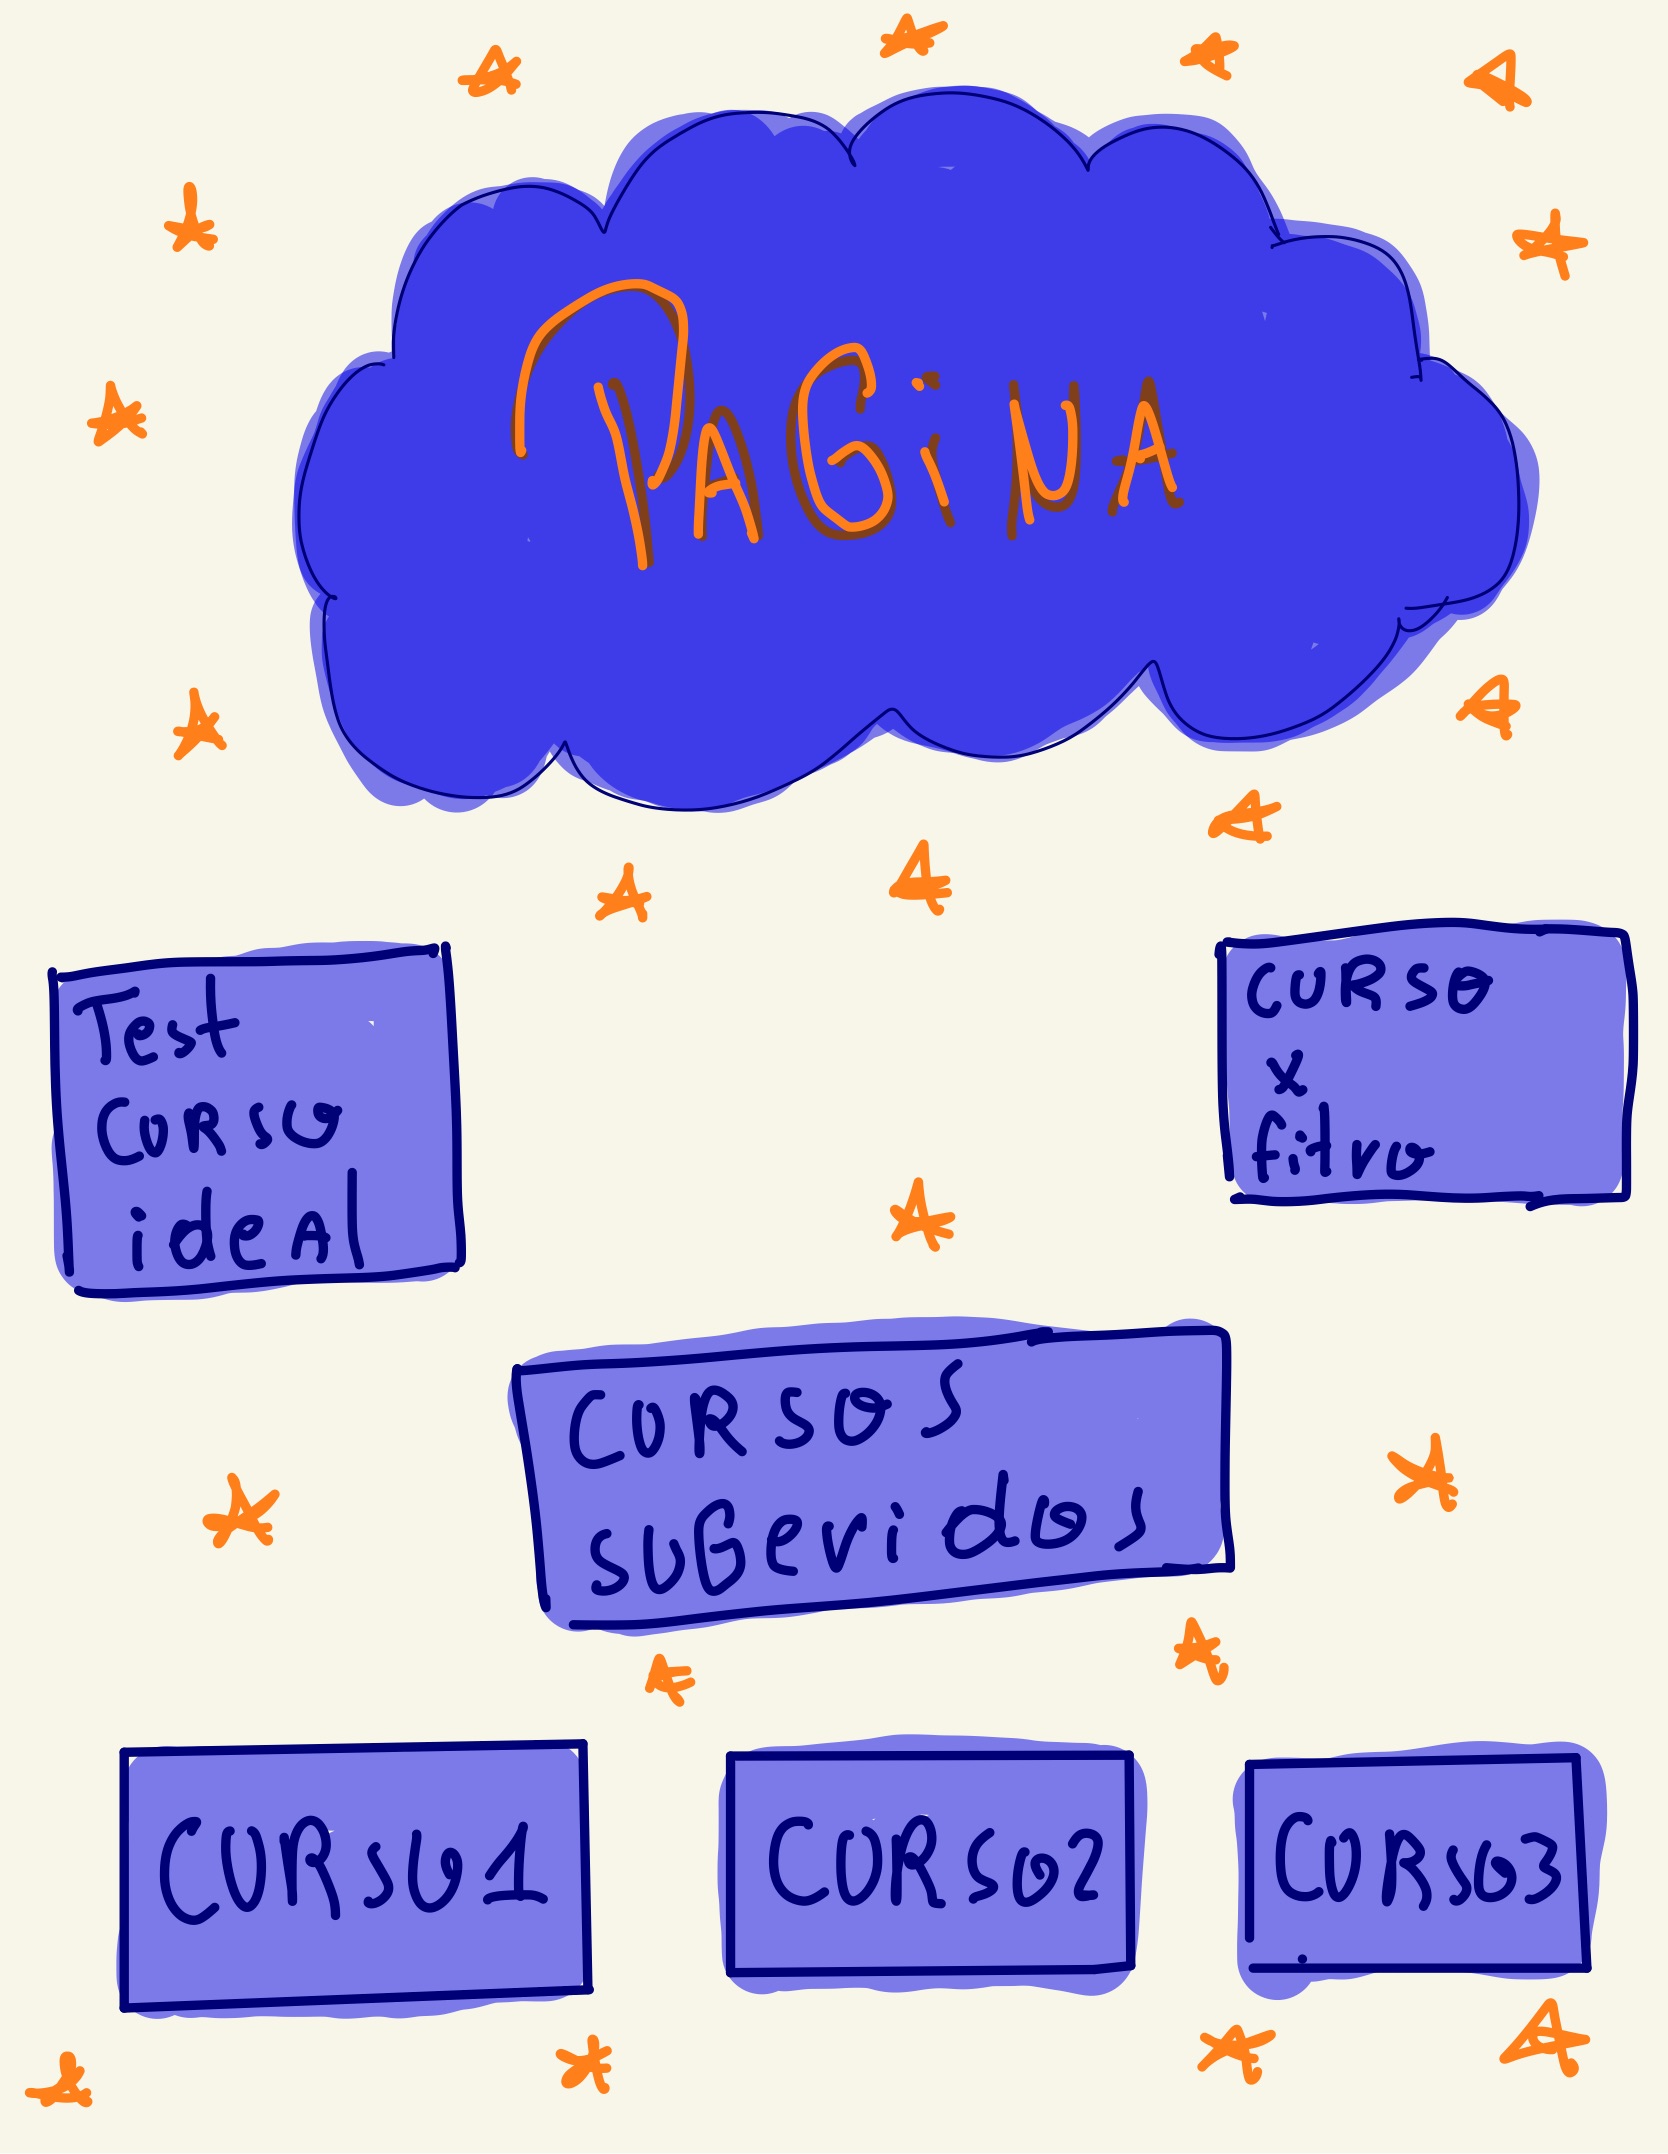 PAGiNA
Test
CURSO
ideAl
CURSO
x
fitro
CURSOS
suGeridos
CURso1
CURso2
CURso3